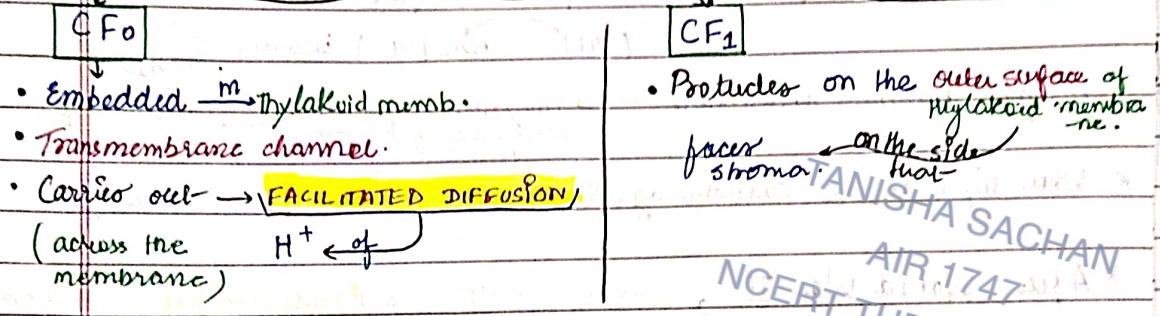 CF0
• Embedded in → thylakoid memb.
• Transmembrane channel.
• Carries out → FACILITATED DIFFUSION
(across the H+ ← of
membrane)
CF1
• Protudes on the outer surface of
thylakoid membra
-ne.
faces ← on the side
stroma. that
TANISHA SACHAN
AIR 1747
NCERT